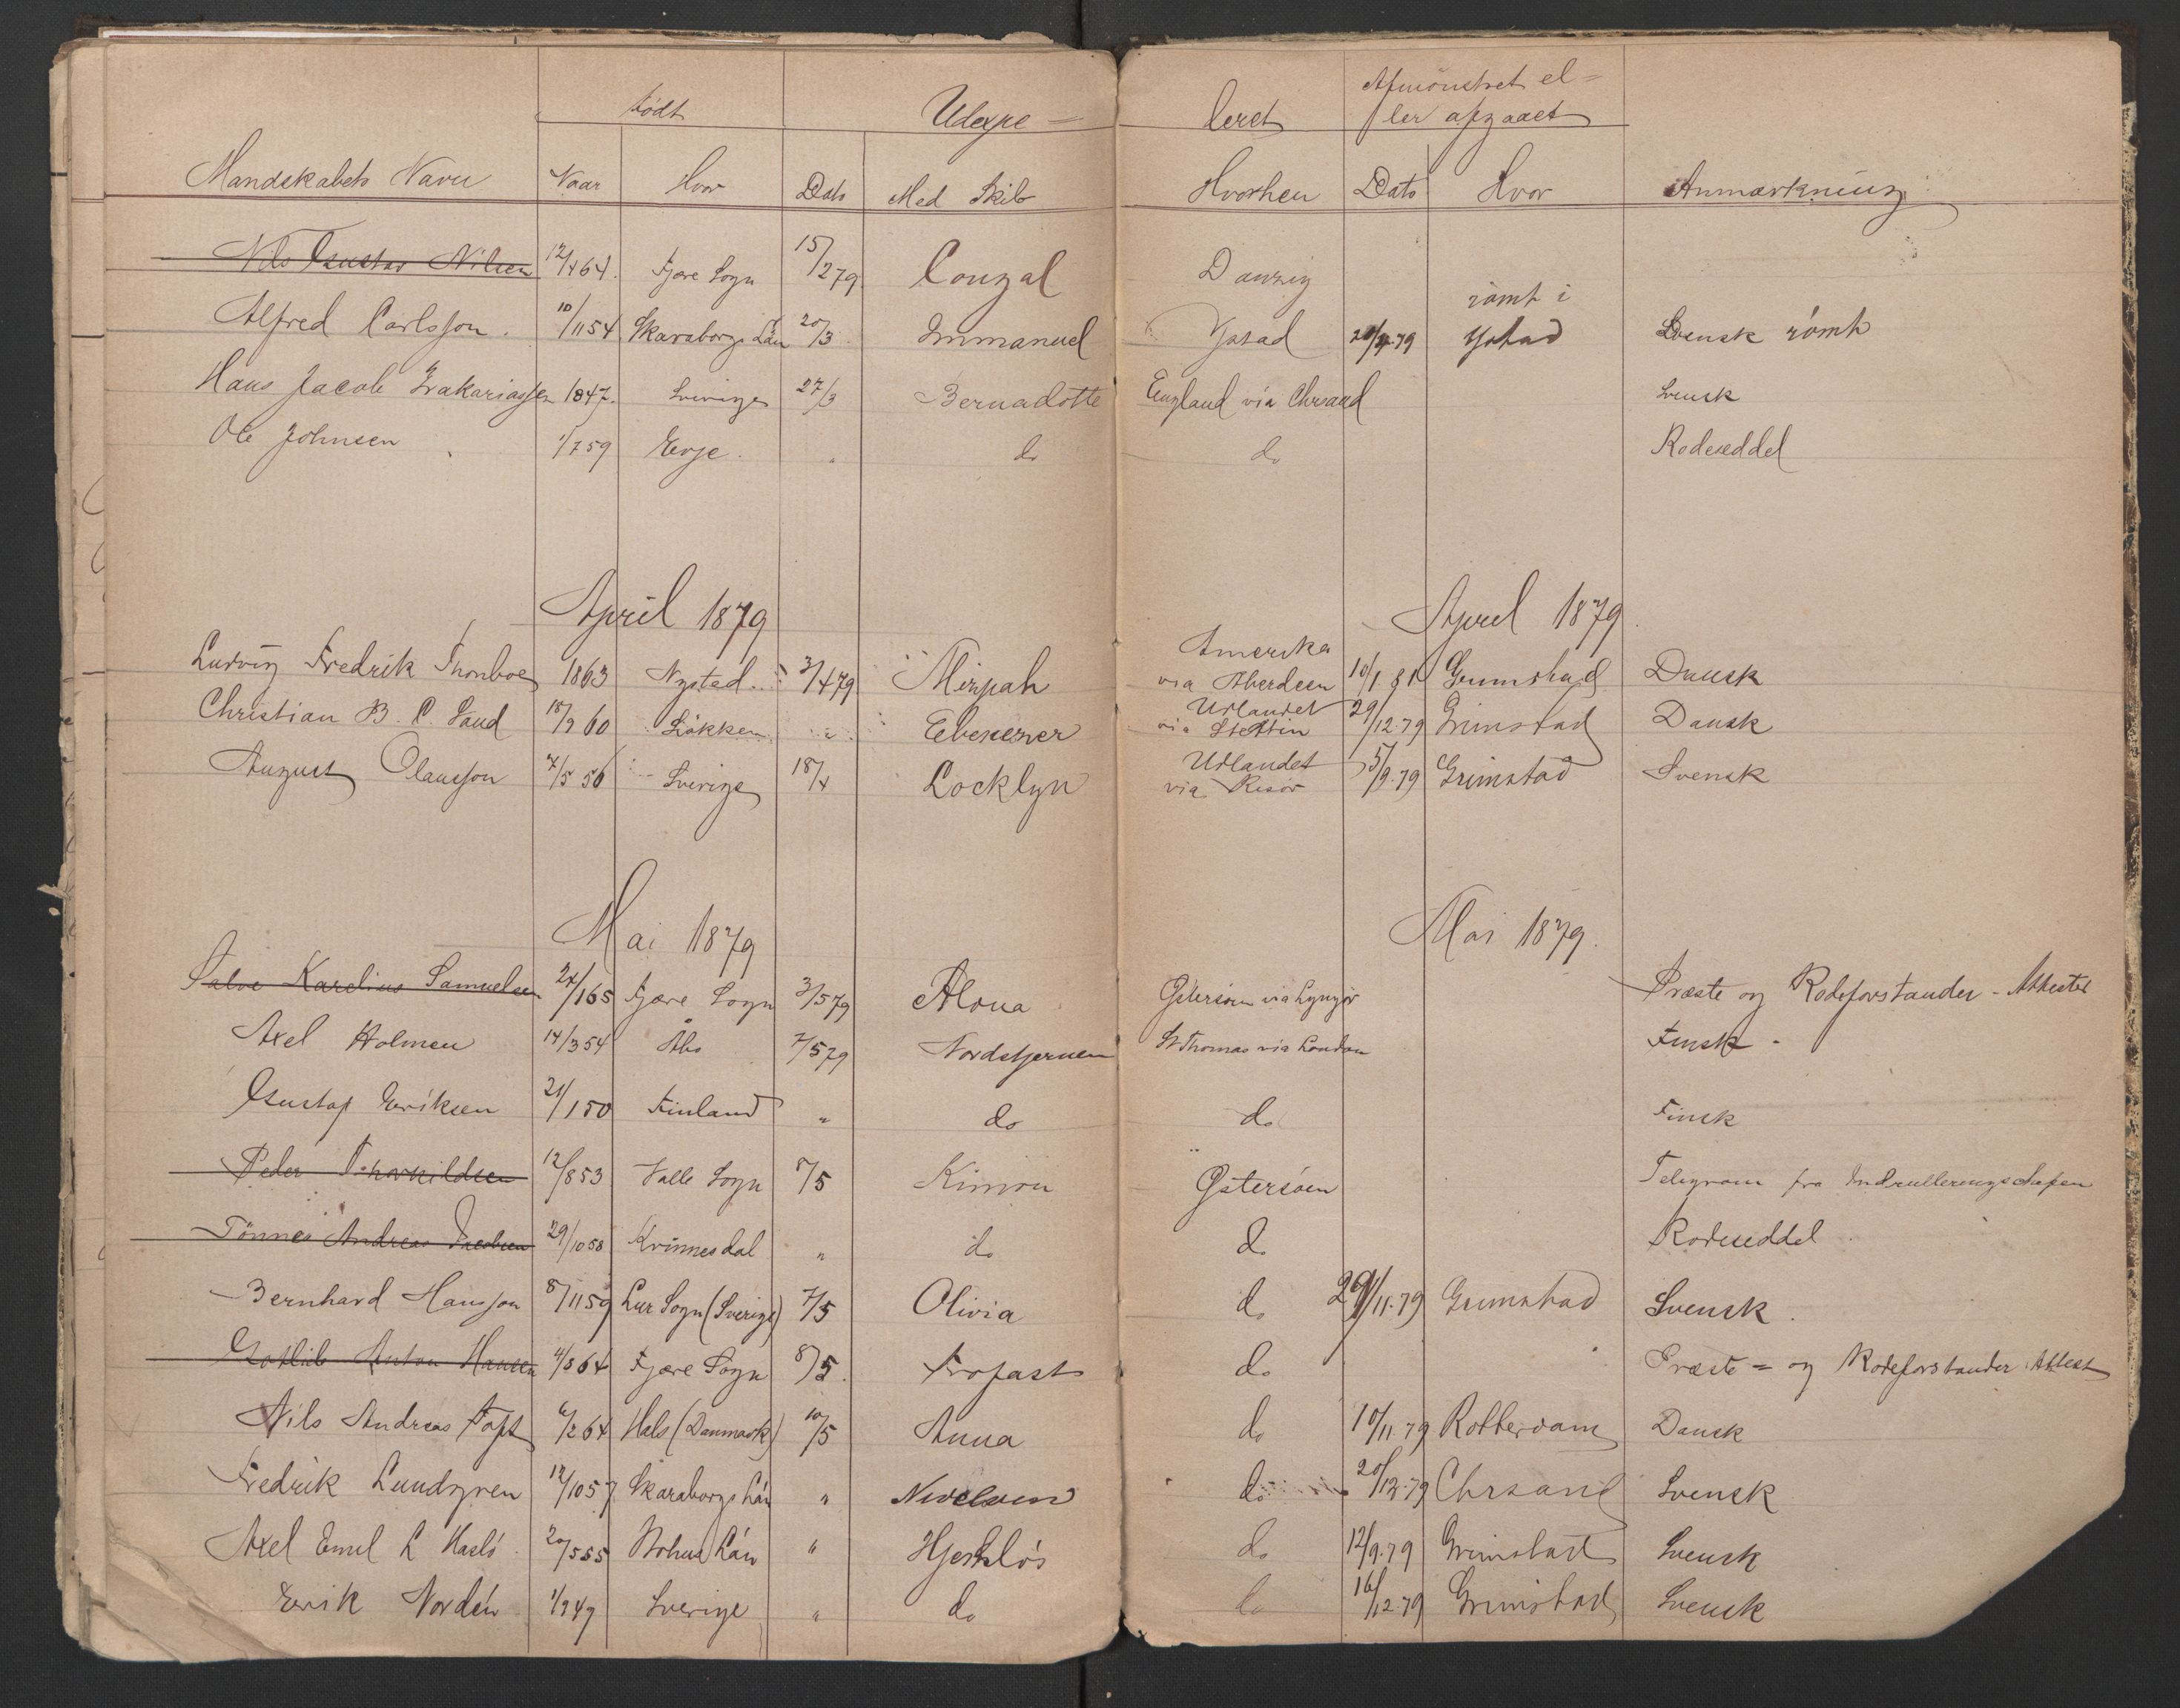 Født Udexpe= deret Afmönstret el=
ler afgaaet
Mandskabets Navn Naar Hvor Dato Med Skib Hvorhen Dato Hvor Anmærkning
Nils Gustav Nilsen 12/4 64. Fjære Sogn 15/2 79 Conzal Danzig
Alfred Carlsson. 10/11 54 Skaraborgs Län 20/3 Immanuel Ystad 20/4 79 römt i Ystad Svensk römt
Hans Jacob Zakariassen 1847. Sverige 27/3 Bernadotte England via Chrsand Svensk
Ole Johnsen 1/7 59 Evje. " do do Rodeseddel
April 1879 April 1879
Ludvig Fredrik Thonboe 1863 Nysted 3/4 79 Mizpah Amerika via Aberdeen 10/1 81 Grimstad Dansk
Christian B. C. Sand 18/9 60 Løkken " Ebenezer Udlandet via Stettin 29/12 79 Grimstad Dansk
August Olausson 7/5 56 Sverige 18/4 Locklyn Udlandet via Risör 5/9 79 Grimstad Svensk
Mai 1879 Mai 1879.
Salve Karelius Samuelsen 24/1 65 Fjære Sogn 3/5 79 Alona Östersöen via Lyngör Præste og Rodeforstander-Attester
Axel Holmen 14/3 54 Åbo 7/5 79 Nordstjernen St Thomas via London Finsk -
Gustaf Eriksen 21/1 50 Finland " do do Finsk
Peder Thorkildsen 12/8 53 Valle Sogn 8/5 Kimon Östersöen Telegram fra Indrulleringschefen
Tönnes Andreas Jacobsen 29/10 58 Kvinnesdal " do do Rodeseddel
Bernhard Hansson 8/11 59 Lur Sogn (Sverige) 7/5 Olivia do 29/11 79 Grimstad Svensk.
Gotlib Anton Hansen 4/5 64 Fjære Sogn 8/5. Trofast do Præste= og Rodeforstander Attest
Nils Andreas Toft 6/2 64 Hals (Danmark) 10/5 Anna do 10/11 79 Rotterdam Dansk
Fredrik Lundgren 12/10 57 Skaraborgs Län " do 20/12 79 Chrsand Svensk
Axel Emil L Hasló 20/5 55 Bohus Län " Hjemlös do 12/9 79 Grimstad Svensk
Erik Nordén 1/9 49 Sverige " do do 16/12 79 Grimstad Svensk